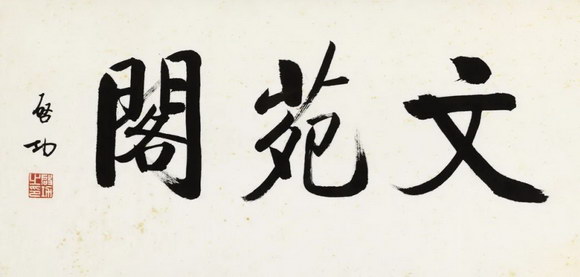 文苑閣
啓功